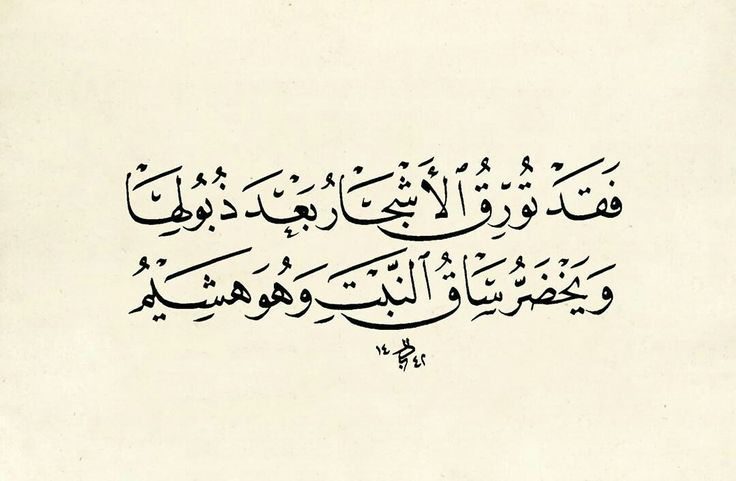 فَقَدْ تُورِّقُ ٱلأَشْجَارُ بَعْدَ ذُبُولِهَا
وَيَخْضَرُّ سَاقُ ٱلنَّبْتِ وَهُوَ هَشِيمُ
١٤ ٤٢